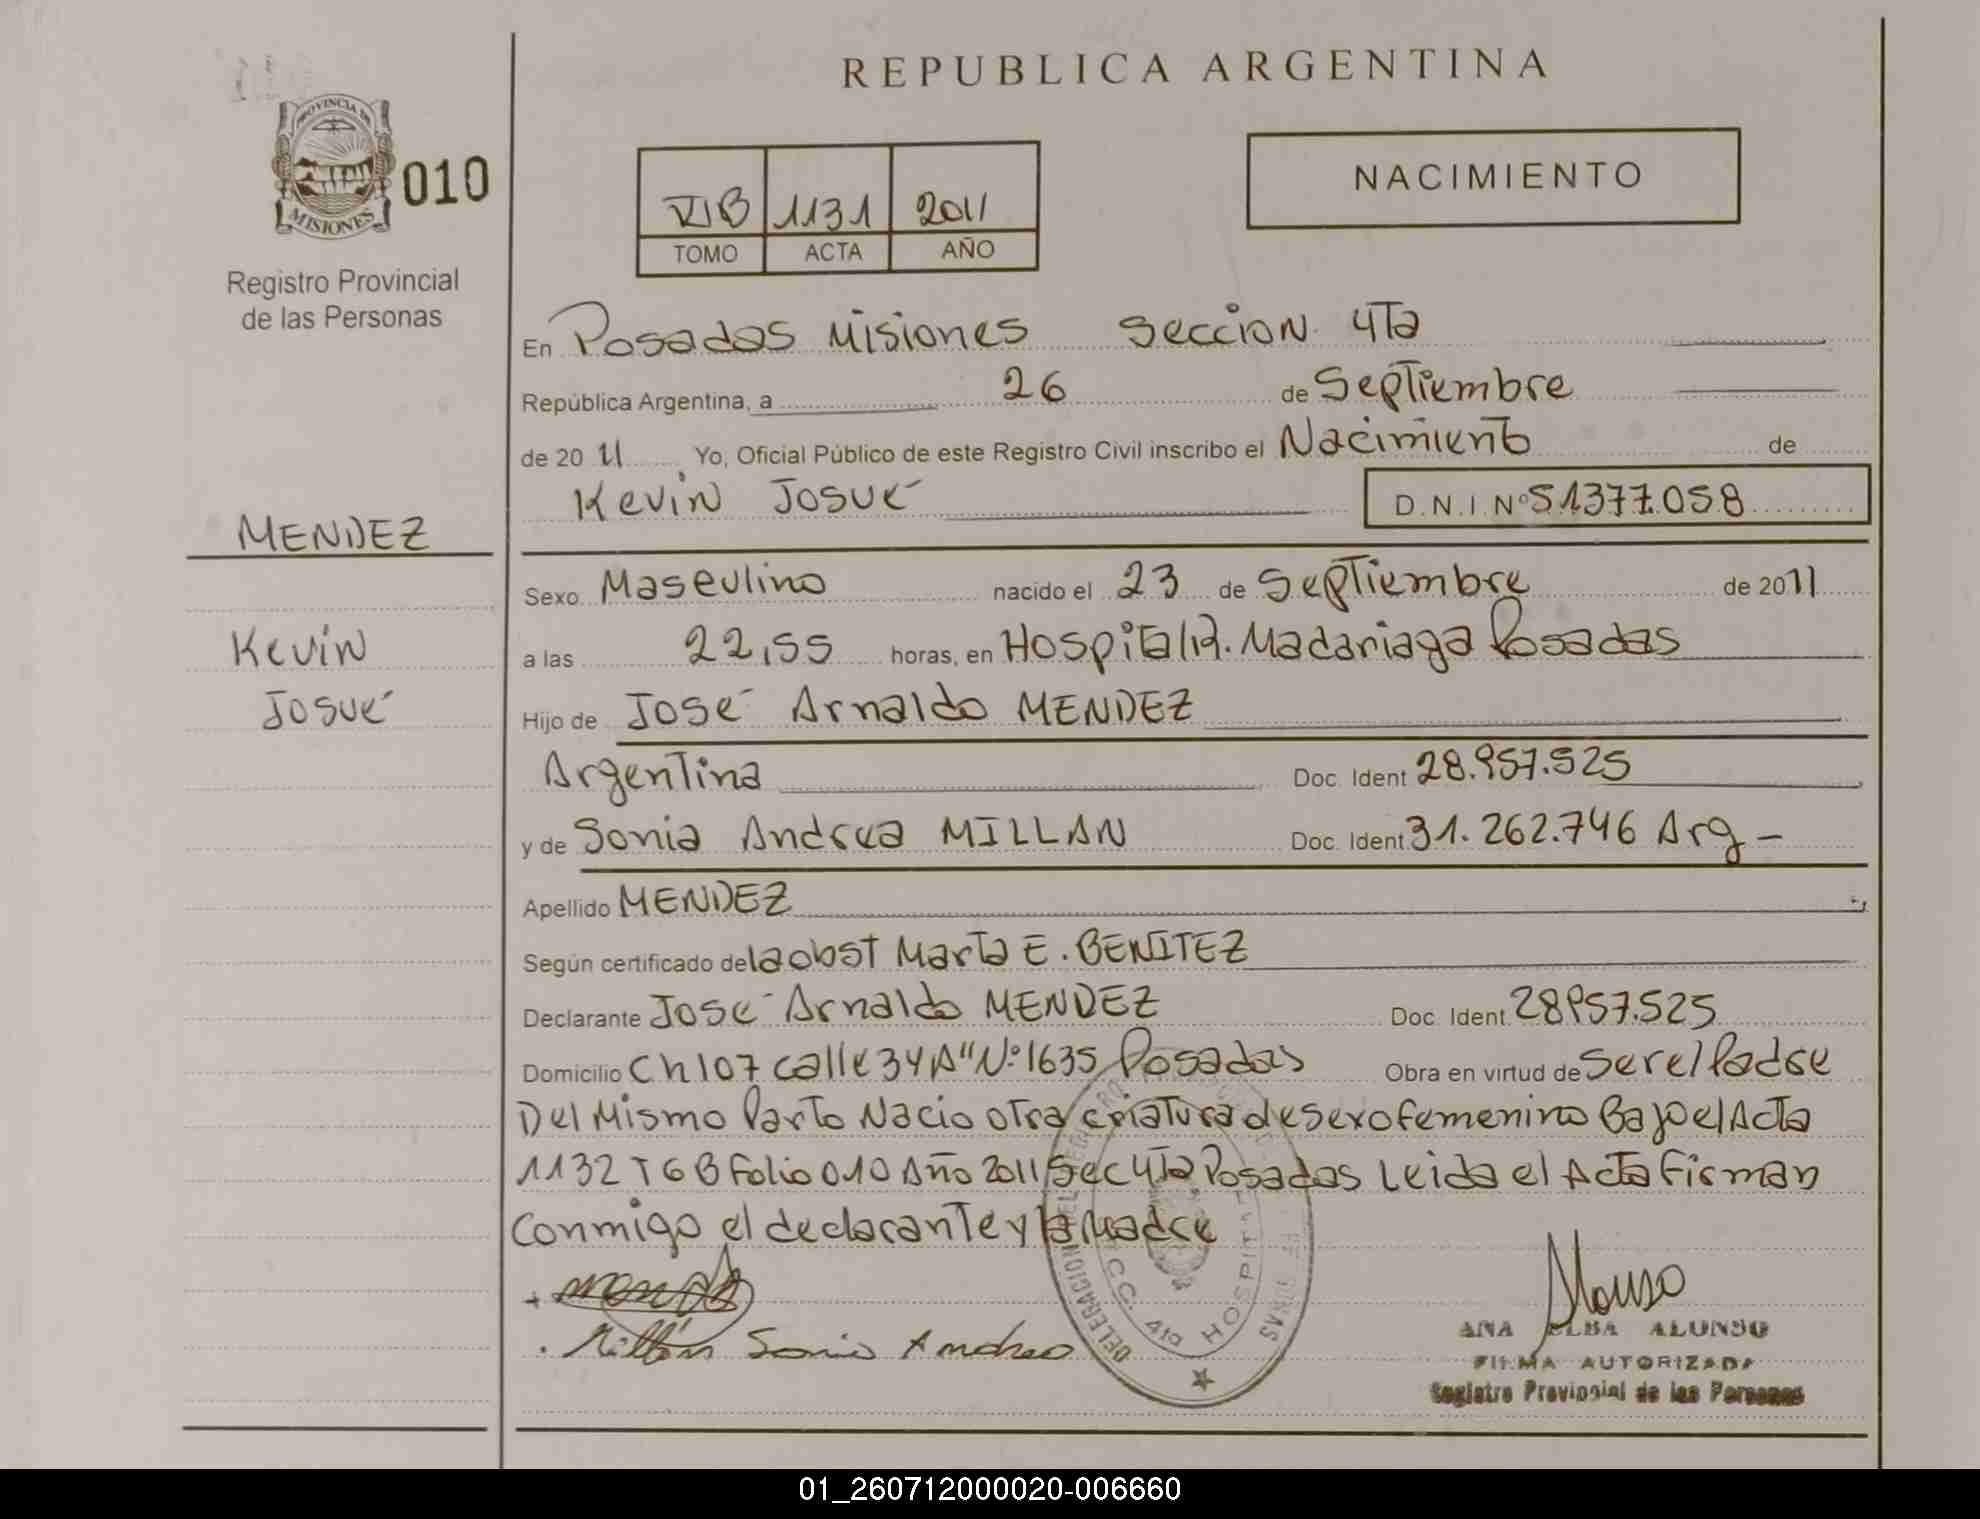 REPUBLICA ARGENTINA
PROVINCIA DE
MISIONES
010
Registro Provincial
de las Personas
VIB 1131 2011
TOMO ACTA AÑO
NACIMIENTO
En Posadas Misiones Seccion 4Ta
República Argentina, a 26 de Septiembre
de 2011 Yo, Oficial Público de este Registro Civil inscribo el Nacimiento de
Kevin Josué D.N.I. Nº 51377.058
MENDEZ
Kevin
Josué
Sexo Masculino nacido el 23 de Septiembre de 2011
a las 22,55 horas, en Hospital R. Madariaga Posadas
Hijo de José Arnaldo MENDEZ
Argentina Doc. Ident 28.957.525
y de Sonia Andrea MILLAN Doc. Ident 31.262.746 Arg -
Apellido MENDEZ
Según certificado de la obst Marta E. BENITEZ
Declarante José Arnaldo MENDEZ Doc. Ident. 28957.525
Domicilio Ch 107 calle 34 A" Nº 1635 Posadas Obra en virtud de Ser el Padre
Del Mismo Parto Nacio otra criatura de sexo femenino Bajo el Acta
1132 T 6 B Folio 010 Año 2011 Sec 4Ta Posadas Leida el Acta Firman
Conmigo el declarante y la Madre
Millán Sonia Andrea
DELEGACION DEL REGISTRO
SECC. 4ta HOSPITAL
Alonso
ANA ELBA ALONSO
FIRMA AUTORIZADA
Registro Provincial de las Personas
01_260712000020-006660